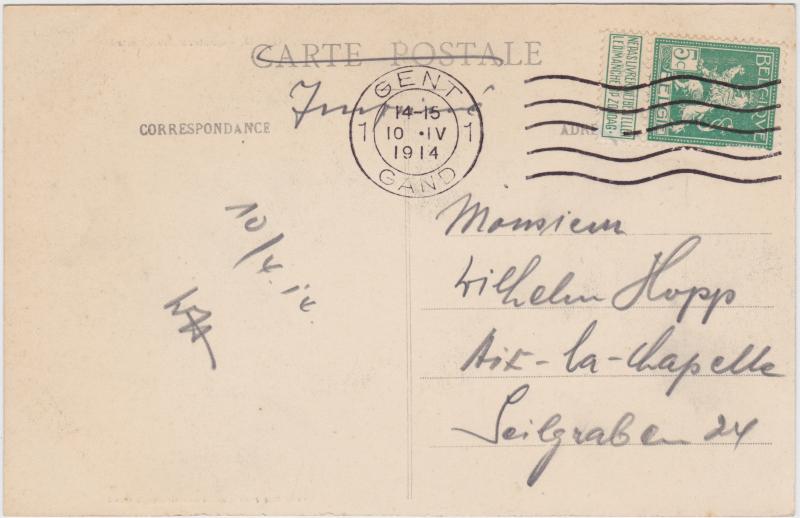 CARTE POSTALE
Imprimé
CORRESPONDANCE
ADRE
GENT
1 14-15 1
10 · IV
1914
GAND
NE PAS LIVRER
LE DIMANCHE ZONDAG
5c
BELGIQUE
BELGIË
10/4.14.
Monsieur
Wilhelm Hopp
Aix-la-Chapelle
Seilgraben 24